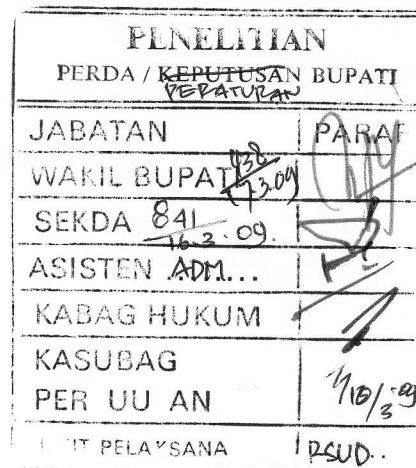 PENELITIAN
PERDA / KEPUTUSAN BUPATI
PERATURAN
JABATAN PARAF
WAKIL BUPATI 438 / 17.3.09
SEKDA 841 / 16.3.09.
ASISTEN ADM...
KABAG HUKUM
KASUBAG
PER UU AN
PELAKSANA RSUD..